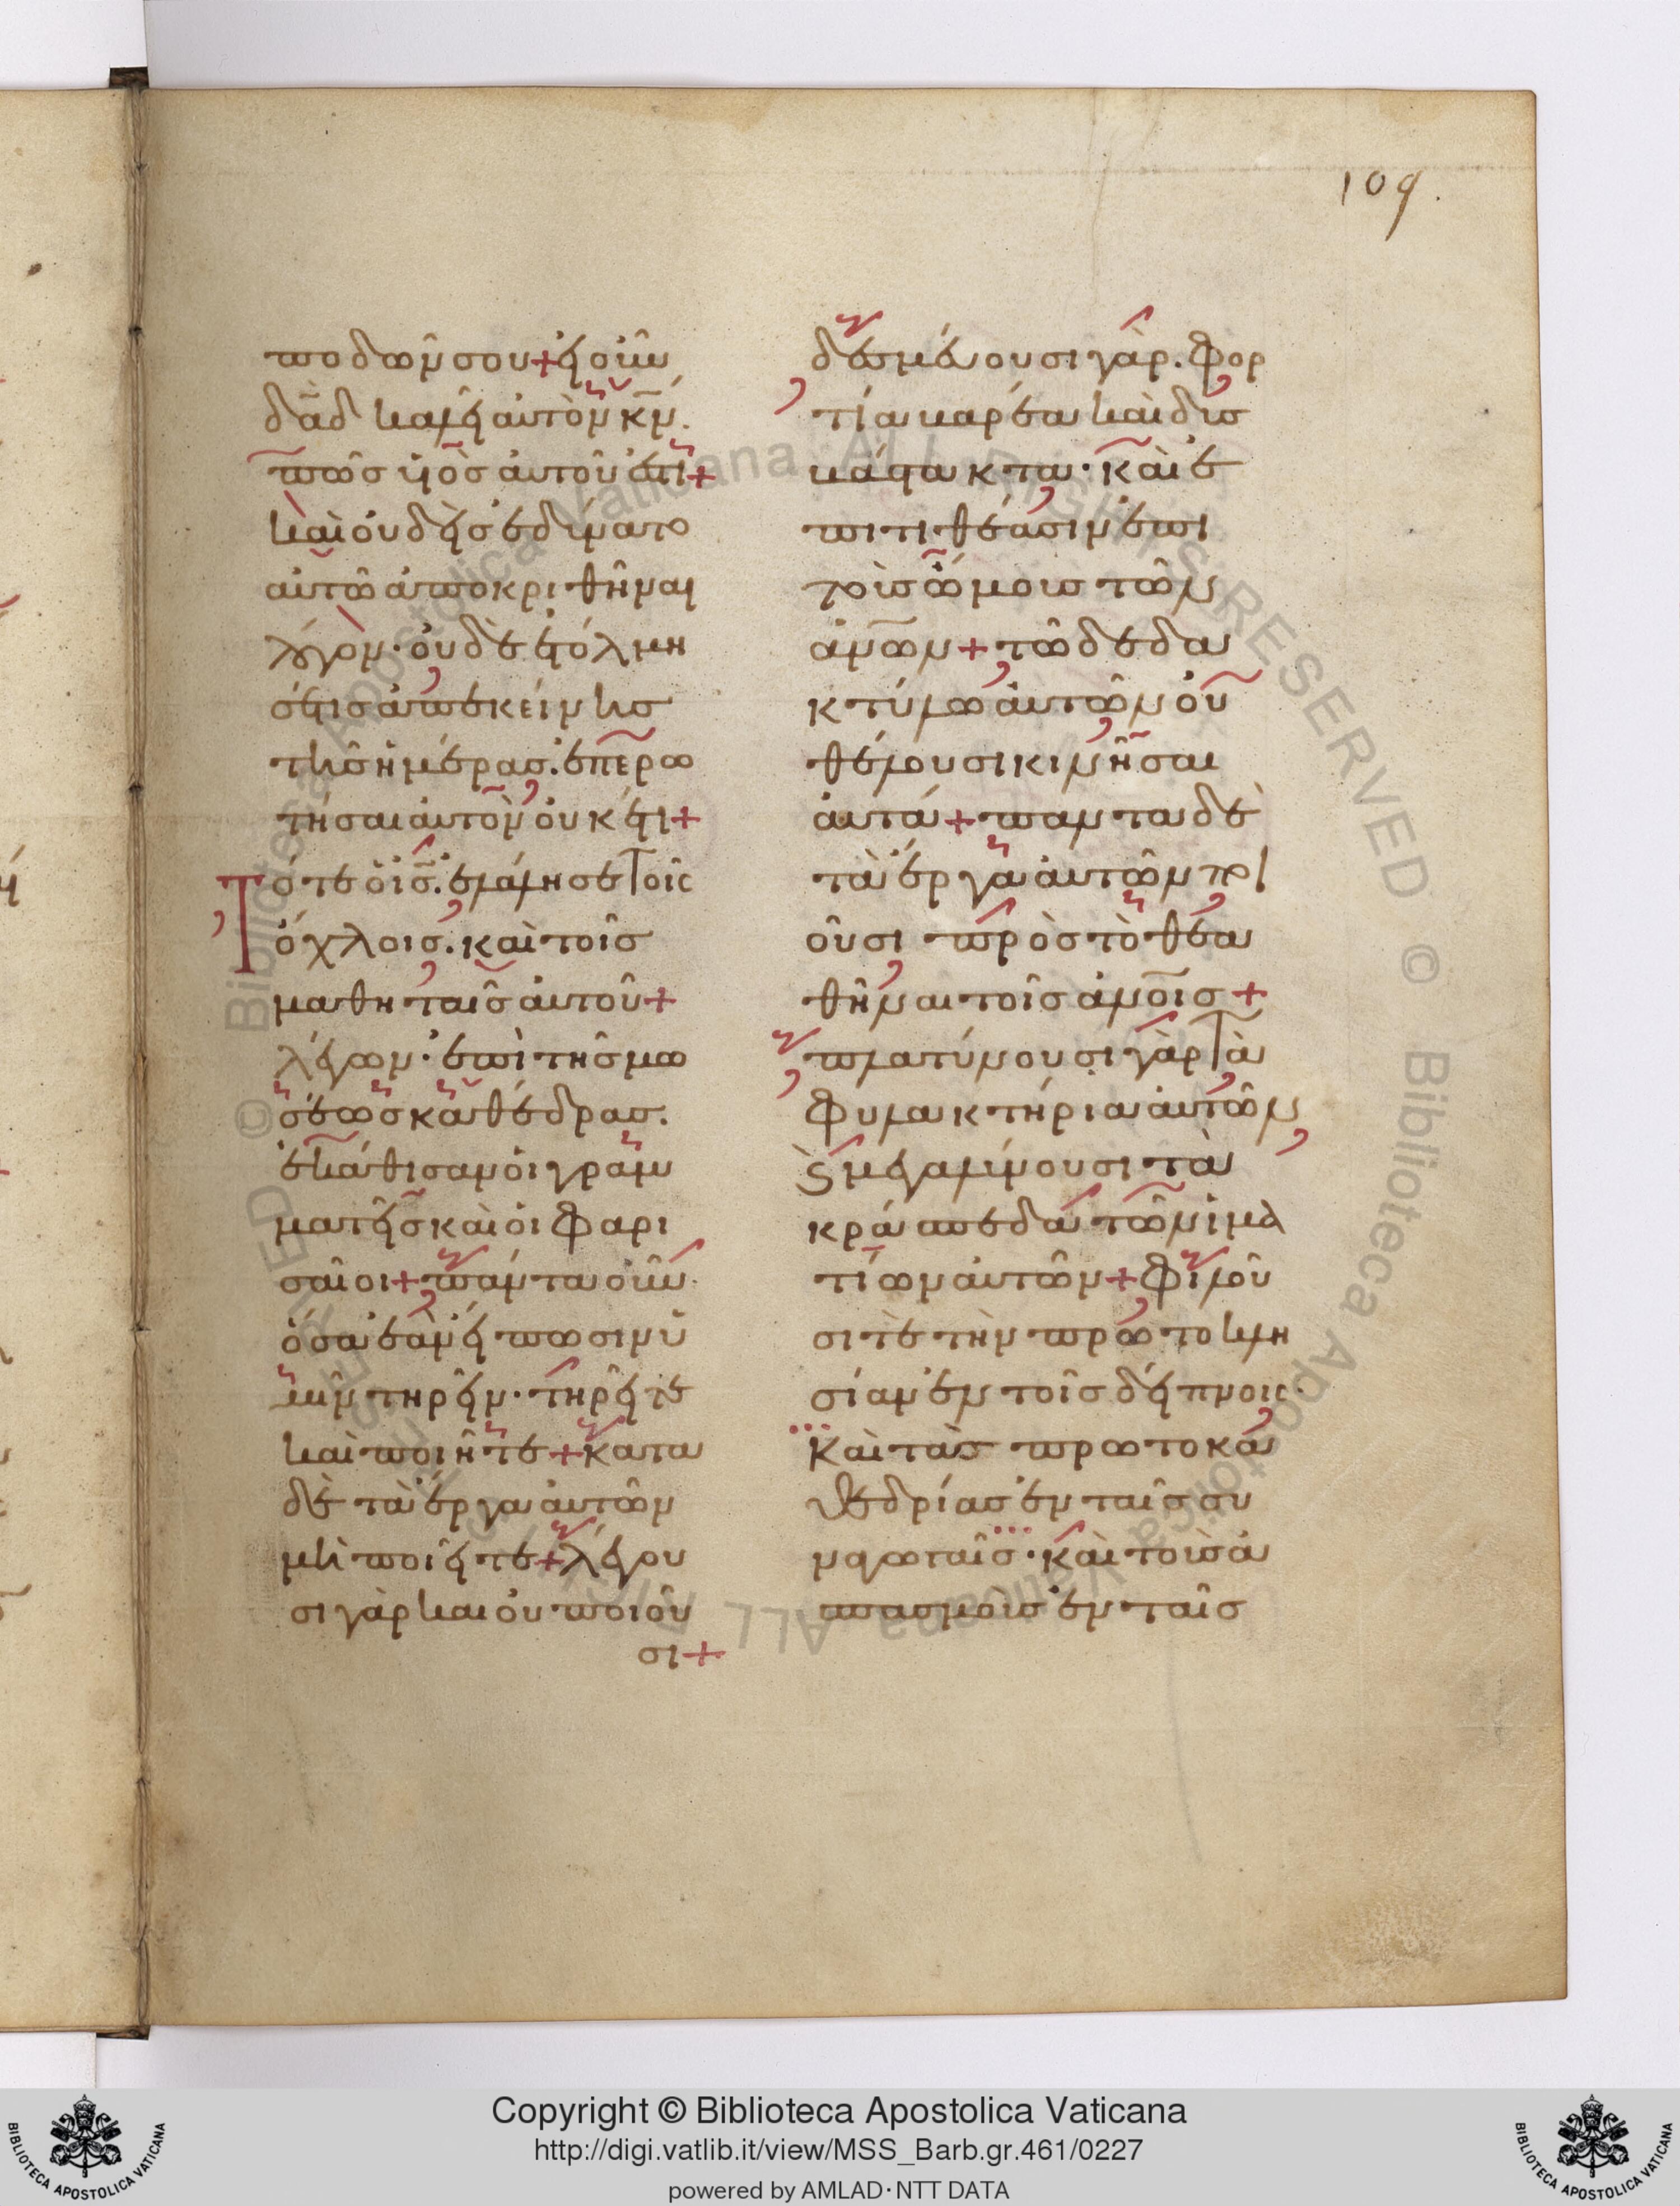 109.
ποδῶν σου + εἰ οὖν
δᾱδ καλεῖ αὐτὸν κ̄ν.
πῶς υἱὸς αὐτοῦ ἐστι +
καὶ οὐδεὶς ἐδύνατο
αὐτῶ ἀποκριθῆναι
λόγον · οὐδὲ ἐτόλμη
σέ τις ἀπ' ἐκείνης
τῆς ἡμέρας. ἐπερω
τῆσαι αὐτὸν οὐκέτι +
Τότε ὁ ις̄. ἐλάλησε τοῖς
ὄχλοις. καὶ τοῖς
μαθηταῖς αὐτοῦ +
λέγων · ἐπὶ τῆς μω
σέως καθέδρας.
ἐκάθισαν οἱ γραμ
ματεῖς καὶ οἱ φαρι
σαῖοι + πάντα οὖν
ὅσα ἐὰν εἴπωσιν ὑ
μῖν τηρεῖν · τηρεῖτε
καὶ ποιῆτε + κατα
δὲ τὰ ἔργα αὐτῶν
μὴ ποιεῖτε + λέγου
σι γὰρ καὶ οὐ ποιοῦ
σι +
δεσμεύουσι γὰρ. φορ
τία βαρέα καὶ δυσ
βάστακτα · καὶ ἐ
πιτιθέασιν ἐπὶ
τοὺς ὤμους τῶν
ἀν̄ων + τῶ δὲ δα
κτύλω αὐτῶν οὐ
θέλουσι κινῆσαι
αὐτά + παντα δὲ
τὰ ἔργα αὐτῶν ποι
οῦσι πρὸς τὸ θεα
θῆναι τοῖς ἀν̄οις +
πλατύνουσι γὰρ τὰ
φυλακτήρια αὐτῶν
ϗ μεγαλύνουσι τὰ
κράσπεδα τῶν ἱμα
τίων αὐτῶν + φιλοῦ
σί τε τὴν πρωτοκλη
σίαν ἐν τοῖς δείπνοις ·
καὶ τὰς πρωτοκα
θεδρίας ἐν ταῖς συ
ναγωγαῖς · καὶ τοὺς ἀ
σπασμοὺς ἐν ταῖς
Copyright © Biblioteca Apostolica Vaticana
http://digi.vatlib.it/view/MSS_Barb.gr.461/0227
powered by AMLAD·NTT DATA
BIBLIOTECA APOSTOLICA VATICANA
BIBLIOTECA APOSTOLICA VATICANA